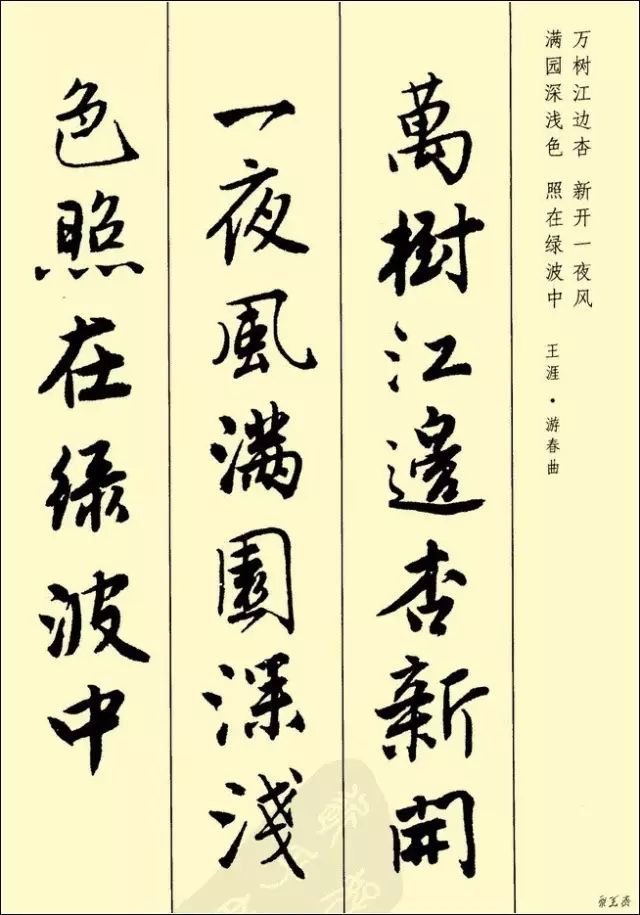 万树江边杏 新开一夜风
满园深浅色 照在绿波中
王涯·游春曲
萬樹江邊杏新開
一夜風滿園深淺
色照在緑波中